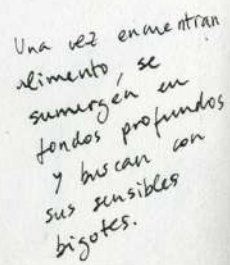 Una vez encuentran
alimento, se
sumergen en
fondos profundos
y buscan con
sus sensibles
bigotes.